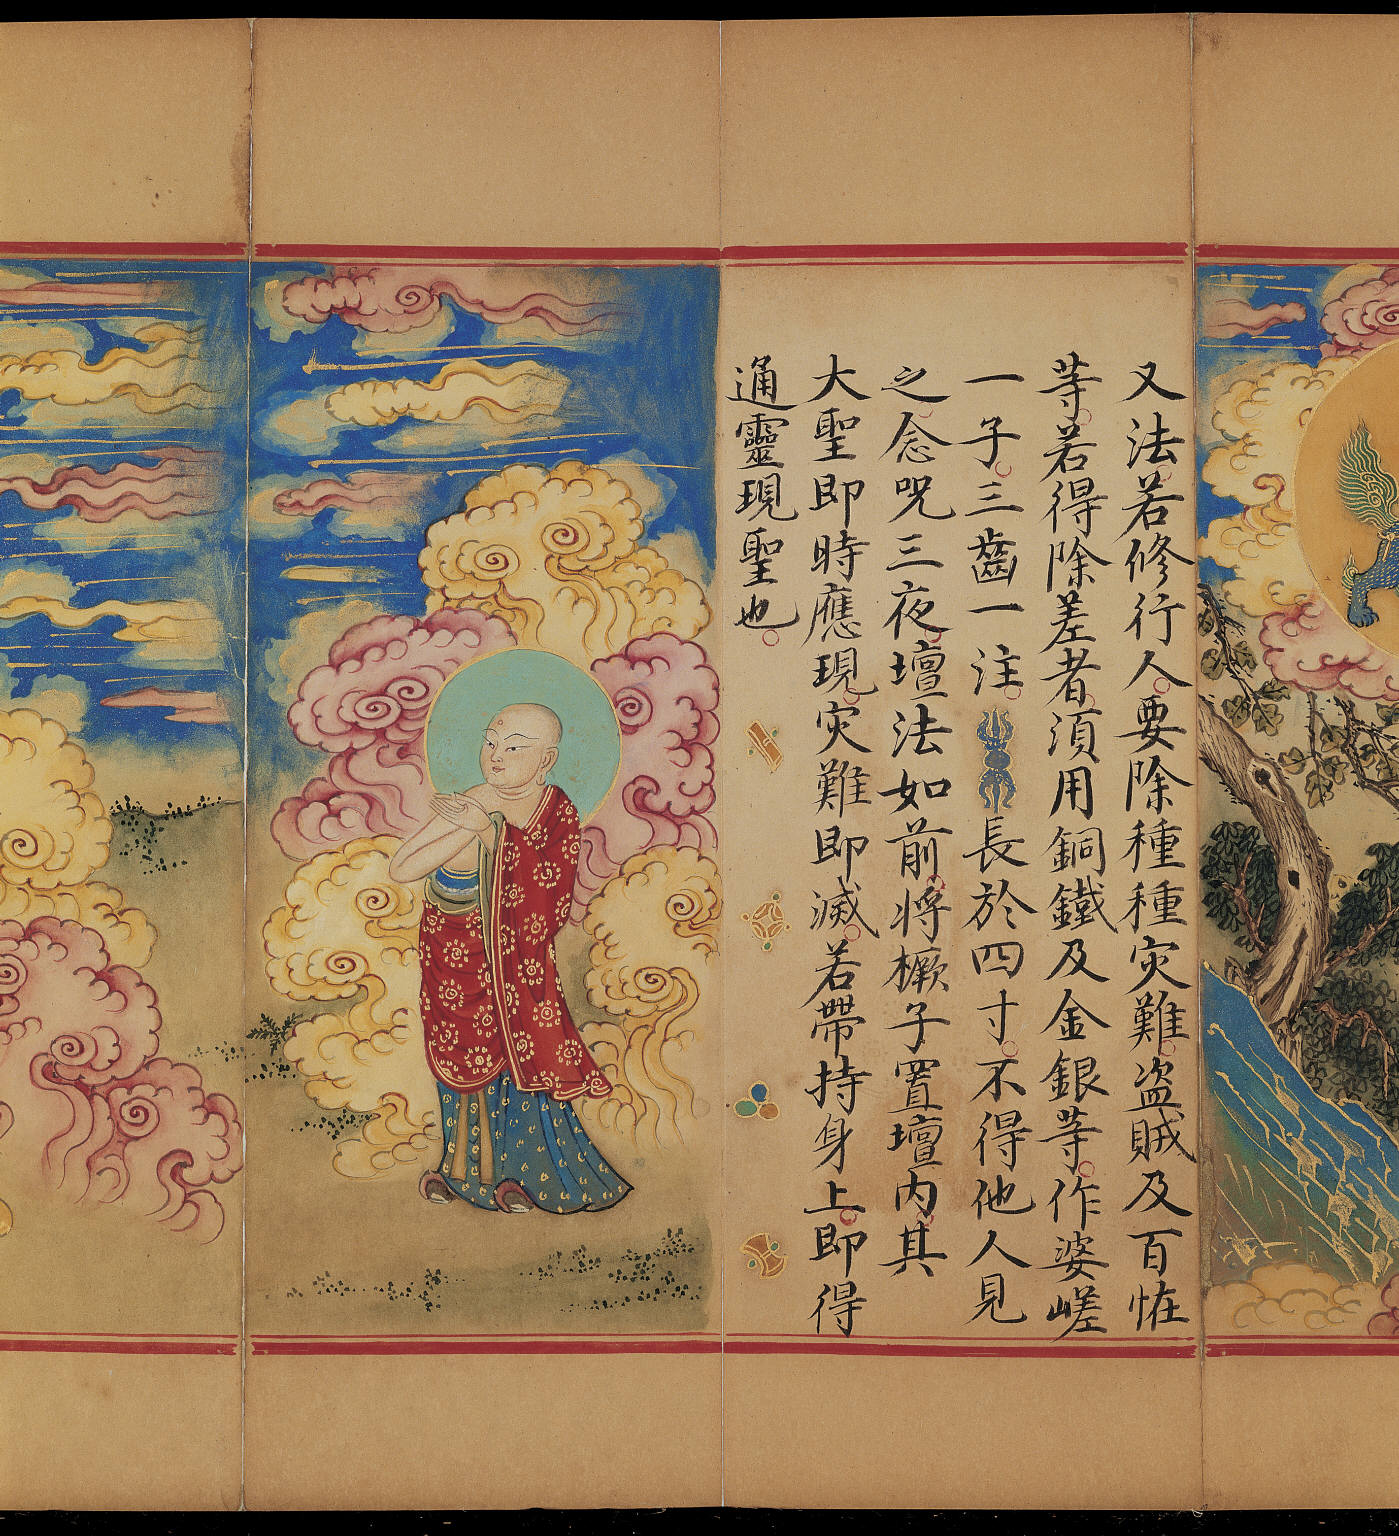 又法若修行人要除種種灾難盗賊及百恠
等若得除差者須用銅鐵及金銀等作婆嵯
一子三齒一注長於四寸不得他人見
之念呪三夜壇法如前将橛子置壇内其
大聖即時應現灾難即滅若帶持身上即得
通靈現聖也